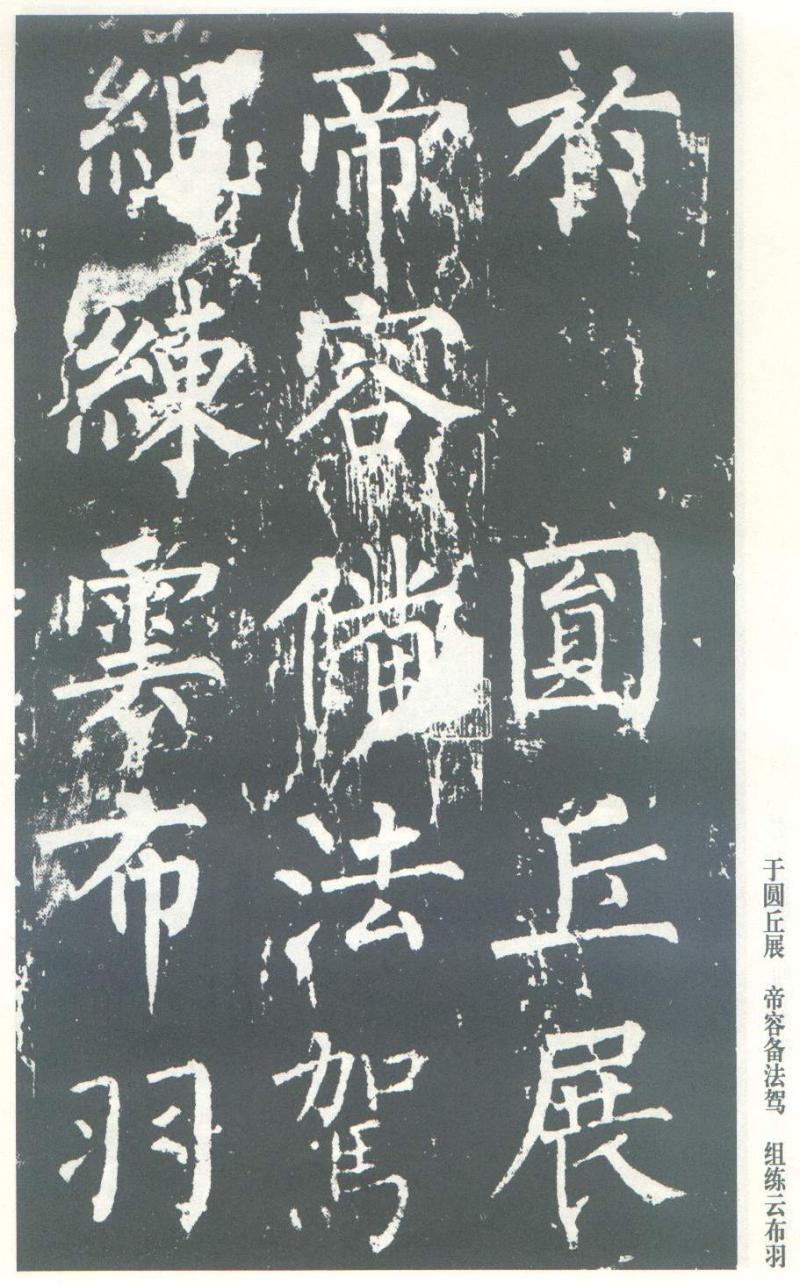 於圓丘展
帝容備法駕
組練雲布羽
于圆丘展　帝容备法驾　组练云布羽